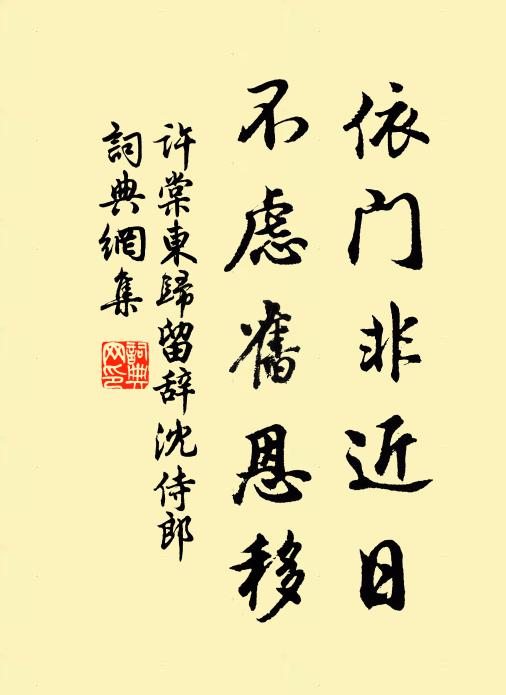 依门非近日
不慮舊恩移
许棠東歸留辞沈侍郎
詞典網集
詞典
网印